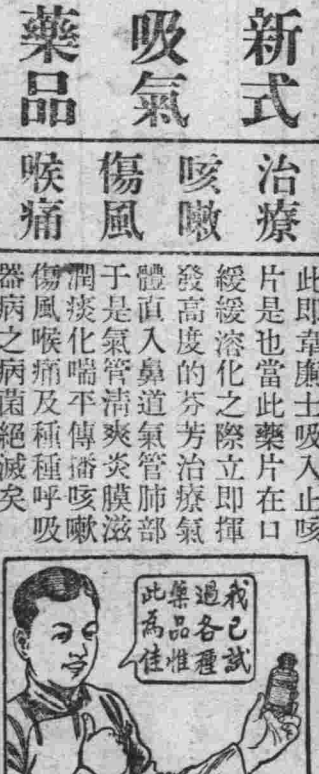 新式
吸氣
藥品
治療
咳嗽
傷風
喉痛
此即韋廉士吸入止咳
片是也當此藥片在口
緩緩溶化之際立即揮
發高度的芬芳治療氣
體直入鼻道氣管肺部
于是氣管清爽炎膜滋
潤痰化喘平傳播咳嗽
傷風喉痛及種種呼吸
器病之病菌絕滅矣
我已試
過各種
藥品惟
此為佳